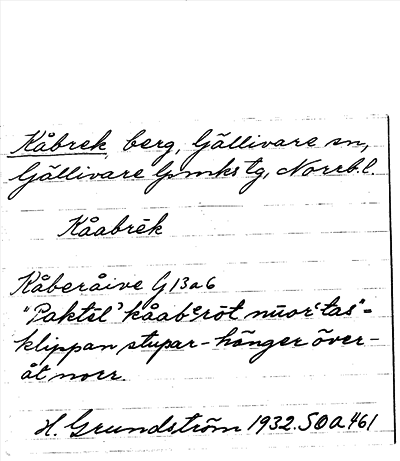 Kåbrek, berg, Gällivare sn,
Gällivare lpmkstg, Norrb.l.
Kåabrēk
Kåberåive G13a6
"Paktēl' kåabᵉrōt nūor'tas" =
klippan stupar - hänger över -
åt norr.
H. Grundström 1932. SOA 461